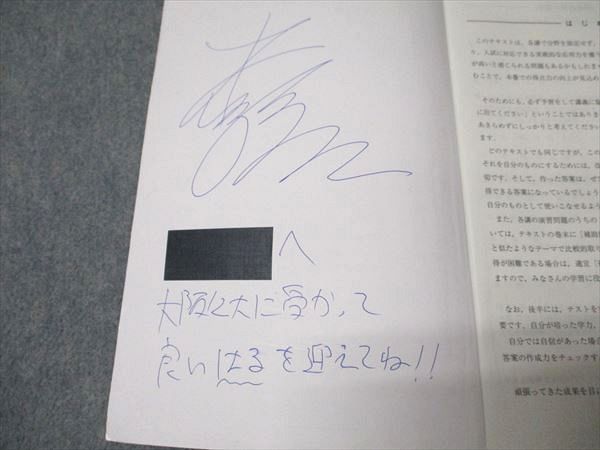 へ
大阪公大に受かって
良いはるを迎えてね!!
はじめ
このテキストは、各講で分野を限定せず、
り、入試に対応できる実践的な応用力を養う
が高いと感じられる問題もあるかもしれませ
むことで、本番での得点力の向上が見込め
そのためにも、必ず予習をして講義に臨
に出てください」ということではありま
あきらめずにしっかりと考えてください
ます。
どのテキストでも同じですが、この
それを自分のものにするためには、復
切です。そして、作った答案は、ぜ
得できる答案になっているでしょう
自分のものとして使いこなせるよう
また、各講の演習問題のうちの
いては、テキストの巻末に「補助
と似たようなテーマで比較的取り
得が困難である場合は、適宜「
ますので、みなさんの学習に役
なお、後半には、テストを
要です。自分が培った学力、
自分では自信があった場合
答案の作成力をチェックす
頑張ってきた成果を目に